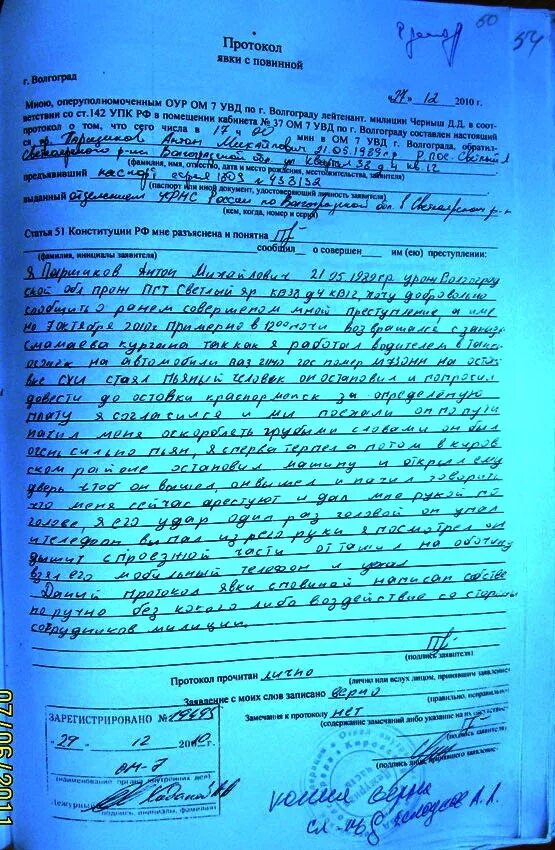 50
54
Протокол
явки с повинной
г. Волгоград
«29» 12 2010 г.
Мною, оперуполномоченным ОУР ОМ 7 УВД по г. Волгограду лейтенант. милиции Черныш Д.Д. в соот-
ветствии со ст.142 УПК РФ в помещении кабинета № 37 ОМ 7 УВД по г. Волгограду составлен настоящий
протокол о том, что сего числа в 17 ч 00 мин в ОМ 7 УВД г. Волгограда, обратил-
ся гр. Паршиков Антон Михайлович 21.05.1989 гр
Светлоярского р-на Волгоградской обл. 38 д 4 кв 12
(фамилия, имя, отчество, дата и место рождения, местожительства, заявителя)
предъявивший паспорт серия 1809 N 433132
(паспорт или иной документ, удостоверяющий личность заявителя)
выданный отделением УФМС России по Волгоградской обл. в Светлоярском р-н
(кем, когда, номер и серия)
Статья 51 Конституции РФ мне разъяснена и понятна
(фамилия, инициалы заявителя) сообщил о совершен им (ею) преступлении:
Я Паршиков Антон Михайлович 21 05 1989гр урож Волгоград
ской обл прож ПГТ Светлый яр кв38 д4 кв12, хочу добровольно
сообщить о ранем совершеном мной преступление, а име
но 7 октября 2010г Примерно в 1200 ночи возвращался с
смамаева кургана так как я работал водителем в такси
на автомобили ваз гос номер на остано
вке стаял пьяный человек он остановил и попросил
довести до оставки красноармейск за определёную
плату я согласился и мы поехали он по пути
начил меня оскорблеть грубыми словами он был
очень сильно пьян, я сперва терпел а потом в киров
ском районе остановил машину и открыл ему
дверь чтоб он вышел, он вышел и начил говорить
что меня сейчас арестуют и дал мне рукой по
голове, я его удар один раз головой он упал
и телефон выпал из его руки я посмотрел он
дышит с проезжной части оттащил на обочину
взял его мобильный телефон и уехал
Даный протокол явки с повиной написан собстве
норучно без какого либо воздействие со стороны
сотрудников милиции.
(подпись заявителя)
Протокол прочитан лично
(лично или вслух лицом, принявшим заявление)
Заявление с моих слов записано верно
(правильно, неправильно)
Замечания к протоколу нет
(содержание замечаний либо указание на их отсутствие)
(подпись заявителя)
(подпись лица, принявшего заявление)
ЗАРЕГИСТРИРОВАНО №
«29» 12 2010г.
ОМ-7
(наименование органа внутренних дел)
Дежурный
(подпись, инициалы, фамилия)
копия верна
07/06/2011